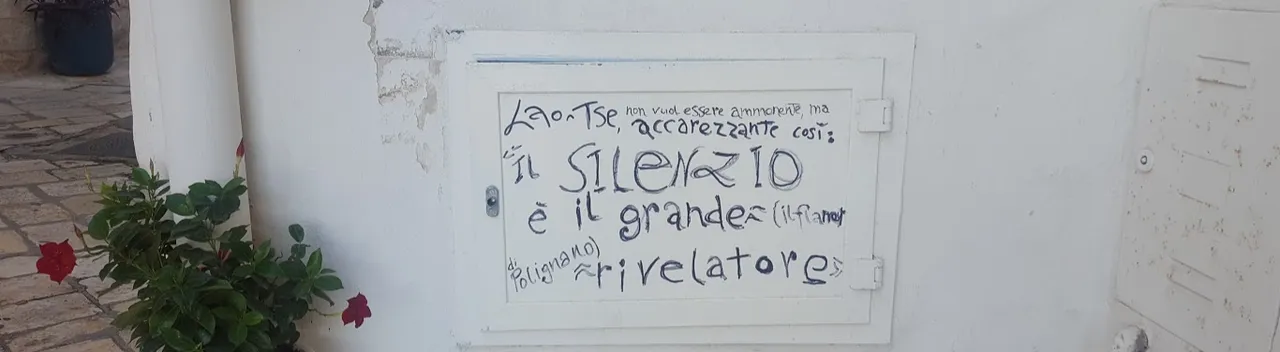 Lao-Tse, non vuol essere ammonente, ma
accarezzante così:
"il SILENZIO
è il grande
(il flaneur
di Polignano)
rivelatore"